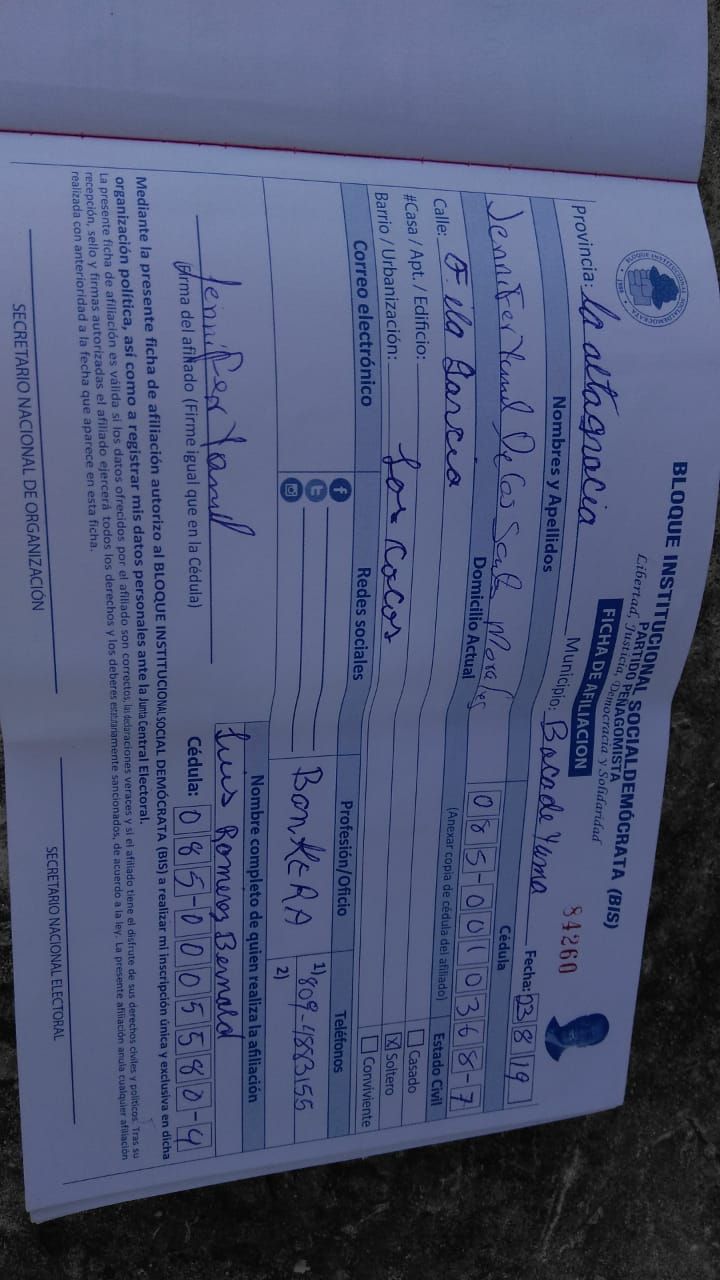 BLOQUE INSTITUCIONAL SOCIALDEMÓCRATA (BIS)
PARTIDO PEÑAGOMISTA
Libertad, Justicia, Democracia y Solidaridad
FICHA DE AFILIACION
84260
BLOQUE INSTITUCIONAL SOCIALDEMOCRATA
Provincia: la altagracia Municipio: Boca de Yuma Fecha: 23 8 19
Nombres y Apellidos Cédula
Jennifer Yamil De los Santos Morales 085-0010368-7
(Anexar copia de cédula del afiliado)
Domicilio Actual Estado Civil
Calle: Garcia
#Casa / Apt. / Edificio:
Barrio / Urbanización: Los Cocos
Casado
X Soltero
Conviviente
Correo electrónico Redes sociales Profesión/Oficio Teléfonos
BanKERA 1) 809-4883155
2)
Jennifer Yamil
(Firma del afiliado (Firme igual que en la Cédula)
Nombre completo de quien realiza la afiliación
Luis Bernald
Cédula: 085-0005580-4
Mediante la presente ficha de afiliación autorizo al BLOQUE INSTITUCIONAL SOCIAL DEMÓCRATA (BIS) a realizar mi inscripción única y exclusiva en dicha
organización política, así como a registrar mis datos personales ante la Junta Central Electoral.
La presente ficha de afiliación es válida si los datos ofrecidos por el afiliado son correctos, las declaraciones veraces y si el afiliado tiene el disfrute de sus derechos civiles y políticos. Tras su
recepción, sello y firmas autorizadas el afiliado ejercerá todos los derechos y los deberes estatutariamente sancionados, de acuerdo a la ley. La presente afiliación anula cualquier afiliación
realizada con anterioridad a la fecha que aparece en esta ficha.
SECRETARIO NACIONAL DE ORGANIZACIÓN SECRETARIO NACIONAL ELECTORAL